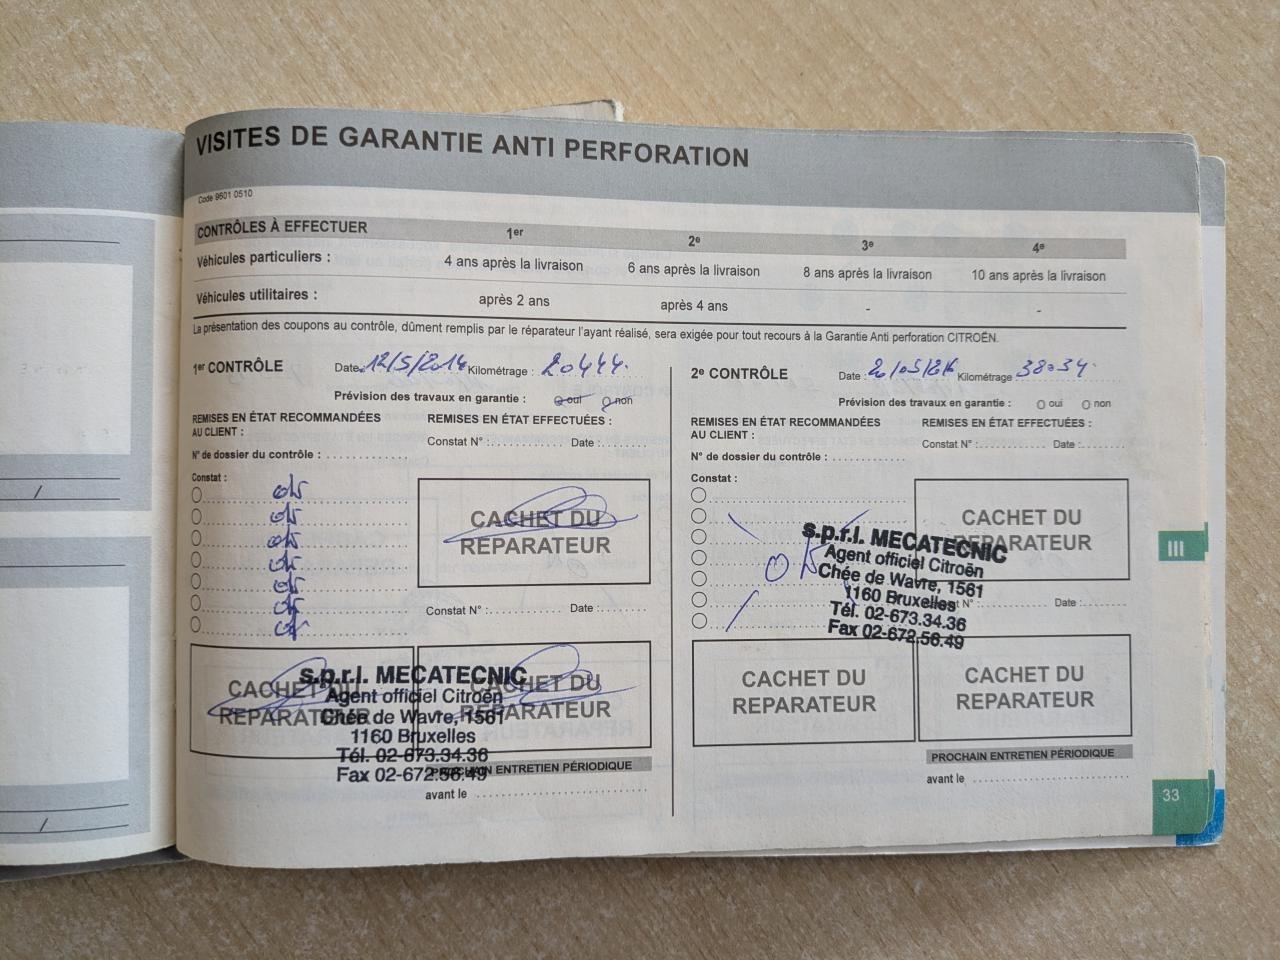 VISITES DE GARANTIE ANTI PERFORATION
Code 9601 0510
CONTRÔLES À EFFECTUER 1er 2e 3e 4e
Véhicules particuliers : 4 ans après la livraison 6 ans après la livraison 8 ans après la livraison 10 ans après la livraison
Véhicules utilitaires : après 2 ans après 4 ans - -
La présentation des coupons au contrôle, dûment remplis par le réparateur l'ayant réalisé, sera exigée pour tout recours à la Garantie Anti perforation CITROËN.
1er CONTRÔLE Date : 12/5/2014 Kilométrage : 20444
Prévision des travaux en garantie : oui non
REMISES EN ÉTAT RECOMMANDÉES
AU CLIENT :
REMISES EN ÉTAT EFFECTUÉES :
Constat N° : Date :
N° de dossier du contrôle :
Constat :
CACHET DU
REPARATEUR
Constat N° : Date :
CACHET DU
REPARATEUR
CACHET DU
REPARATEUR
s.p.r.l. MECATECNIC
Agent officiel Citroën
Chée de Wavre, 1561
1160 Bruxelles
Tél. 02-673.34.36
Fax 02-672.56.49
PROCHAIN ENTRETIEN PÉRIODIQUE
avant le
2e CONTRÔLE Date : Kilométrage : 38034
Prévision des travaux en garantie : oui non
REMISES EN ÉTAT RECOMMANDÉES
AU CLIENT :
REMISES EN ÉTAT EFFECTUÉES :
Constat N° : Date :
N° de dossier du contrôle :
Constat :
OK
CACHET DU
REPARATEUR
s.p.r.l. MECATECNIC
Agent officiel Citroën
Chée de Wavre, 1561
1160 Bruxelles
Tél. 02-673.34.36
Fax 02-672.56.49
N° : Date :
CACHET DU
REPARATEUR
CACHET DU
REPARATEUR
PROCHAIN ENTRETIEN PÉRIODIQUE
avant le
III
33